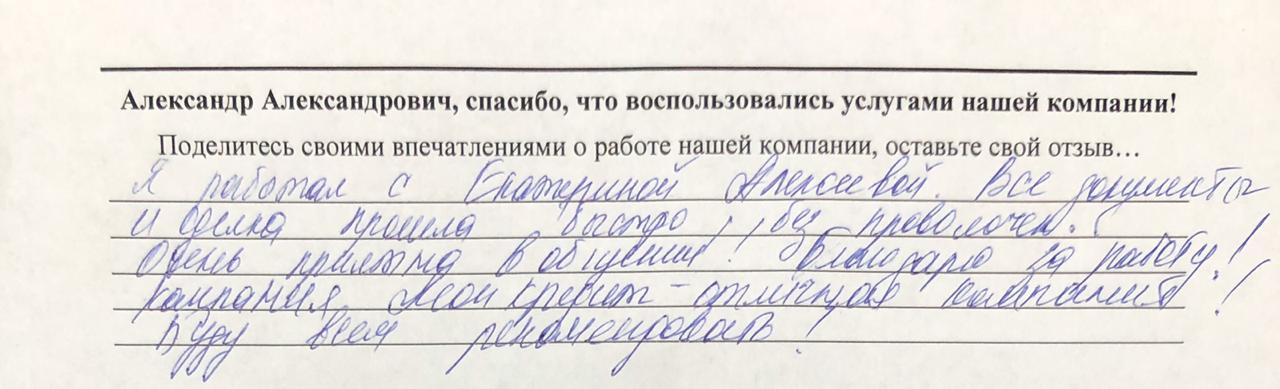 Александр Александрович, спасибо, что воспользовались услугами нашей компании!
Поделитесь своими впечатлениями о работе нашей компании, оставьте свой отзыв...
Я работал с Екатериной Алексеевой. Все документы
и сделка прошла быстро, без проволочек.
Очень приятна в общении! Благодарю за работу!
Компания Мой кредит - отличная компания!
Буду всем рекомендовать!